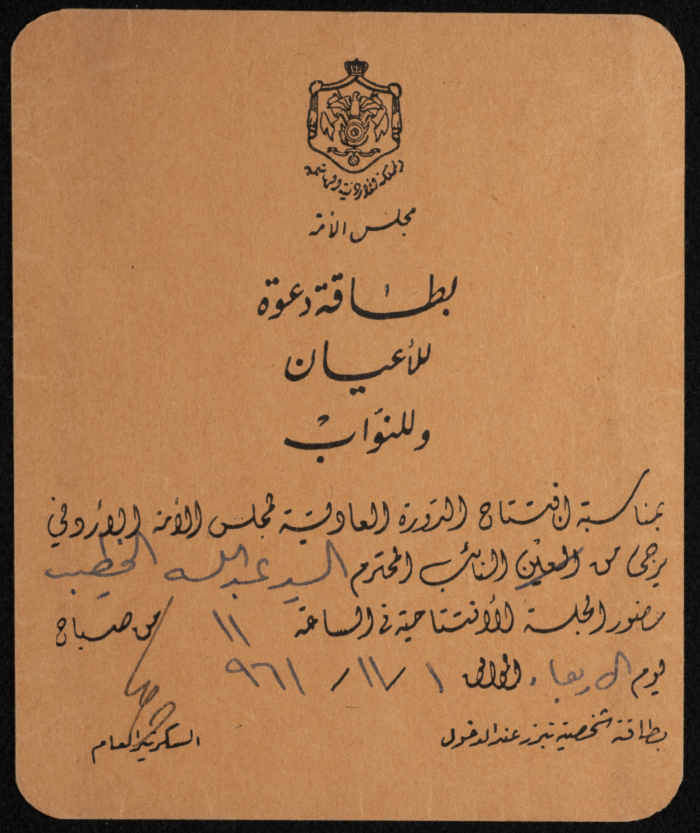 المملكة الأردنية الهاشمية
مجلس الأمة
بطاقة دعوة
للأعيان
وللنوّاب
بمناسبة افتتاح الدورة العادية لمجلس الأمة الأردني
يرجى من العين النائب المحترم السيد عبدالله الخطيب
حضور الجلسة الأفتتاحية في الساعة ١١ من صباح
يوم الاربعاء الموافق ١/١١/٩٦١
بطاقة شخصية تبرز عند الدخول
السكرتير العام